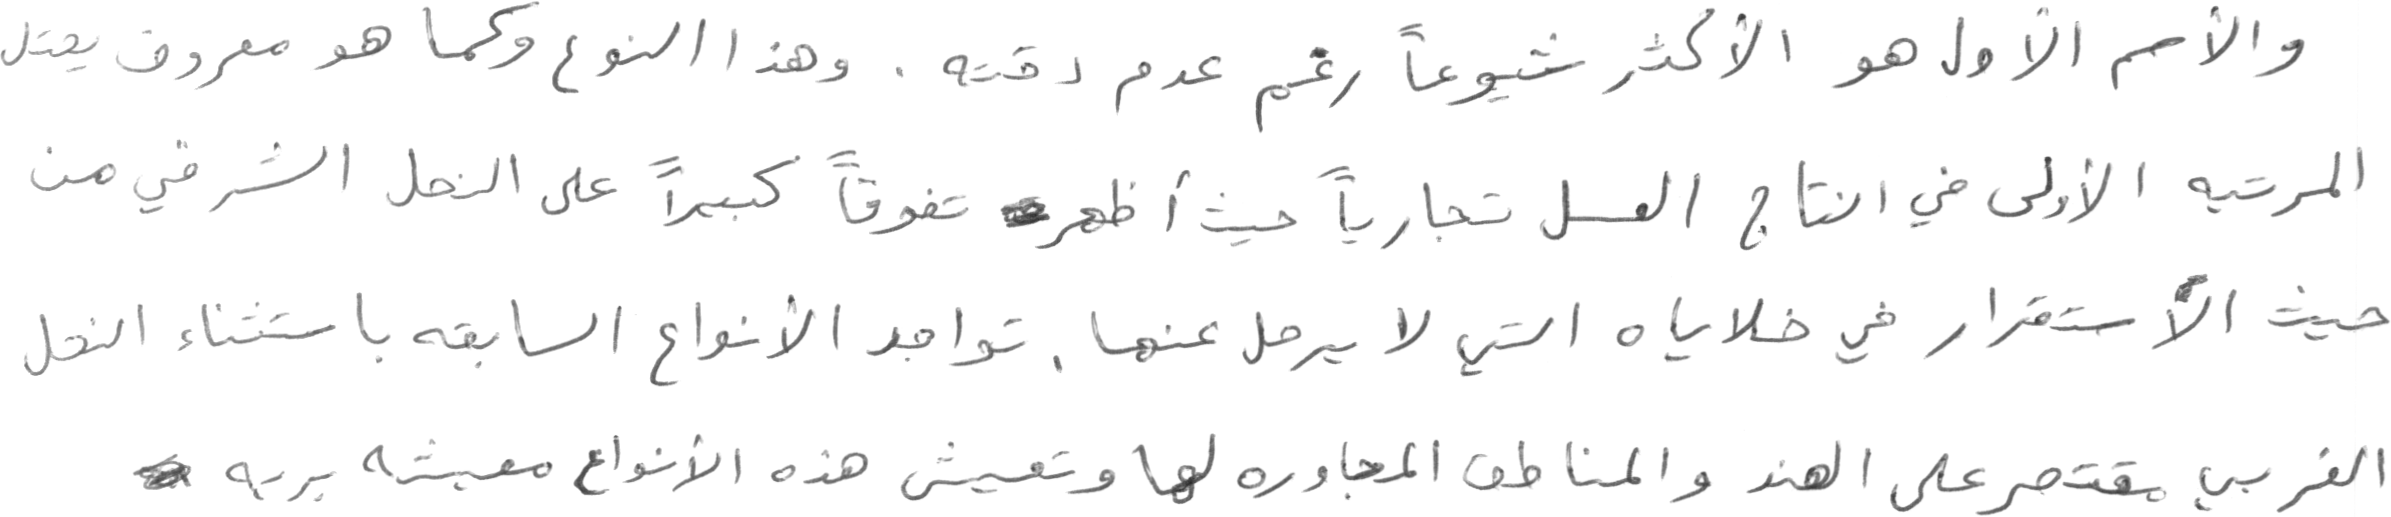 والأسم الأول هو الأكثر شيوعاً رغم عدم دقته . وهذا النوع وكما هو معروف يحتل
المرتبه الأولى في انتاج العسل تجارياً حيث أظهر تفوقاً كبيراً على النحل الشرقي من
حيث الأستقرار في خلاياه التي لا يرحل عنها . تواجد الأنواع السابقه باستثناء النحل
الغربي يقتصر على الهند والمناطق المجاوره لها وتعيش هذه الأنواع معيشه بريه